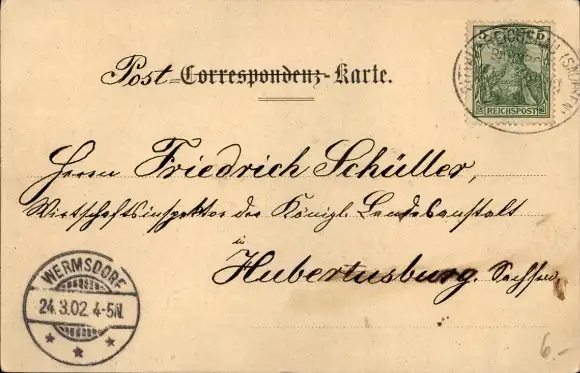 Post-Correspondenz-Karte.
5 5
REICHSPOST
Herrn Friedrich Schüller,
Wirtschaftsinspektor der Königl. Landesanstalt
in
Hubertusburg. Sachsen
WERMSDORF
24.3.02. 4-5N.
6.-